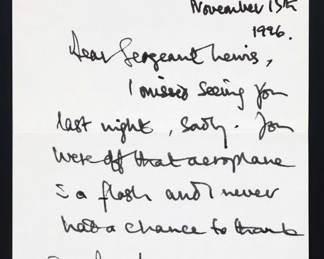 November 15th
1996.
Dear Sergeant Lewis,
I missed seeing you
last night, sadly. You
were off that aeroplane
in a flash and I never
had a chance to thank